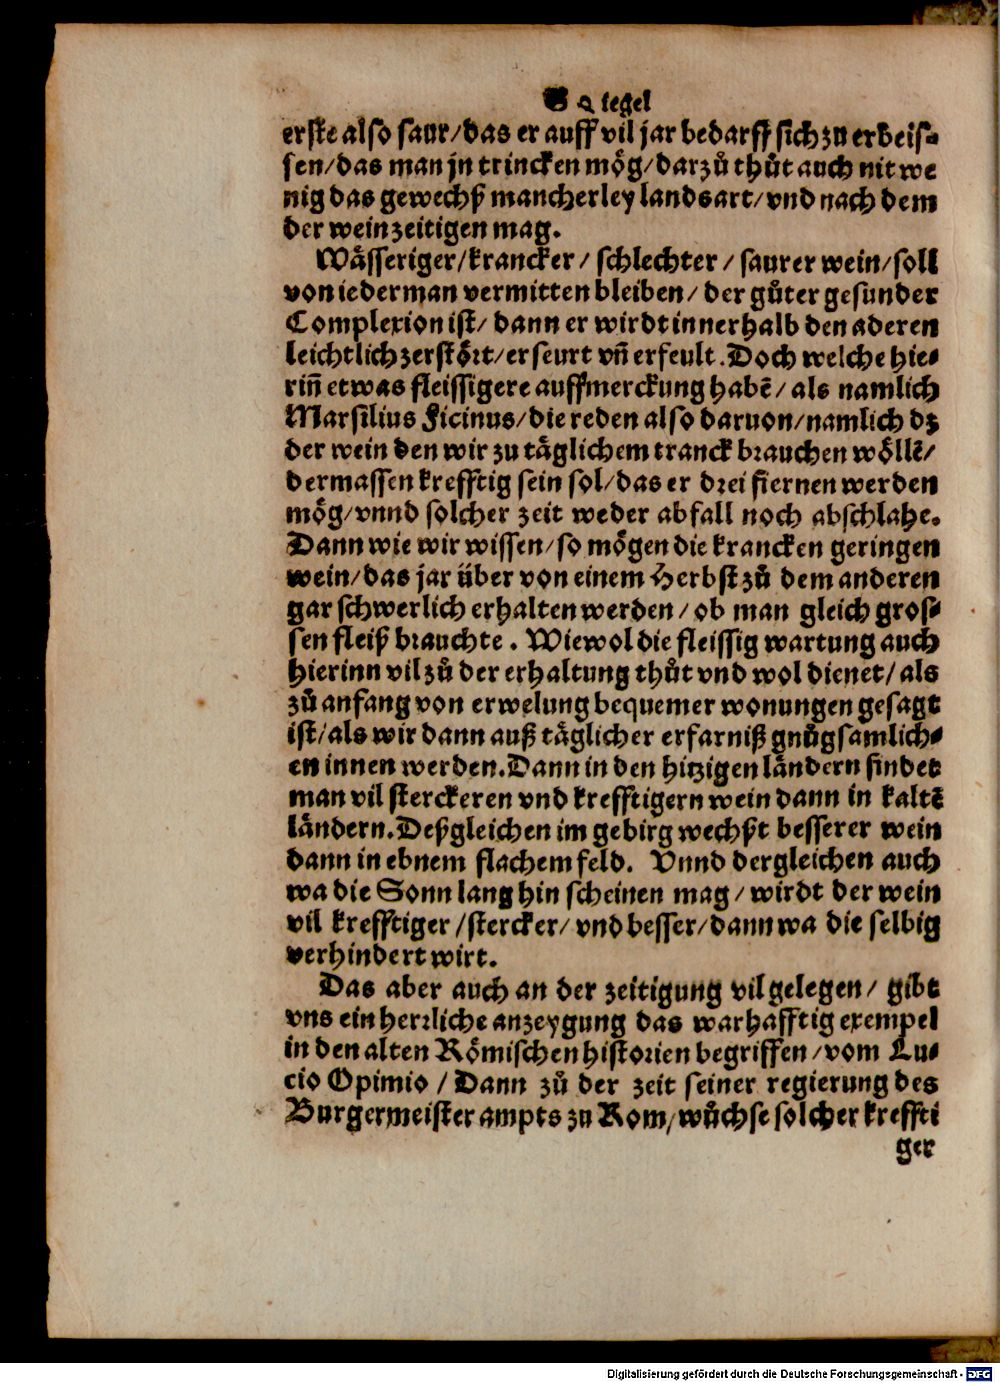 tegel
erste also saur/das er auff vil jar bedarff sich zu erbeis⸗
sen/das man jn trincken mög/darzů thůt auch nit we
nig das gewechß mancherley landsart/vnd nach dem
der wein zeitigen mag.
Wässeriger/krancker/ schlechter / saurer wein/soll
von iederman vermitten bleiben/ der gůter gesunder
Complexion ist/ dann er wirdt innerhalb den aderen
leichtlich zerstört/erseurt vñ erfeult. Doch welche hie⸗
riñ etwas fleissigere auffmerckung habẽ/ als namlich
Marsilius Ficinus/die reden also daruon/namlich dz
der wein den wir zu täglichem tranck brauchen wöllẽ/
dermassen krefftig sein sol/das er drei fiernen werden
mög/vnnd solcher zeit weder abfall noch abschlahe.
Dann wie wir wissen/so mögen die krancken geringen
wein/das jar über von einem Herbst zů dem anderen
gar schwerlich erhalten werden/ ob man gleich gros⸗
sen fleiß brauchte. Wiewol die fleissig wartung auch
hierinn vil zů der erhaltung thůt vnd wol dienet/ als
zů anfang von erwelung bequemer wonungen gesagt
ist/als wir dann auß täglicher erfarniß gnůgsamlich⸗
en innen werden. Dann in den hitzigen ländern findet
man vil sterckeren vnd krefftigern wein dann in kaltẽ
ländern. Deßgleichen im gebirg wechßt besserer wein
dann in ebnem flachem feld. Vnnd dergleichen auch
wa die Sonn lang hin scheinen mag/ wirdt der wein
vil krefftiger/stercker/ vnd besser/dann wa die selbig
verhindert wirt.
Das aber auch an der zeitigung vil gelegen/ gibt
vns ein herrliche anzeygung das warhafftig exempel
in den alten Römischen historien begriffen/vom Lu⸗
cio Opimio / Dann zů der zeit seiner regierung des
Burgermeister ampts zu Rom/wůchse solcher kreffti
ger
Digitalisierung gefördert durch die Deutsche Forschungsgemeinschaft - DFG